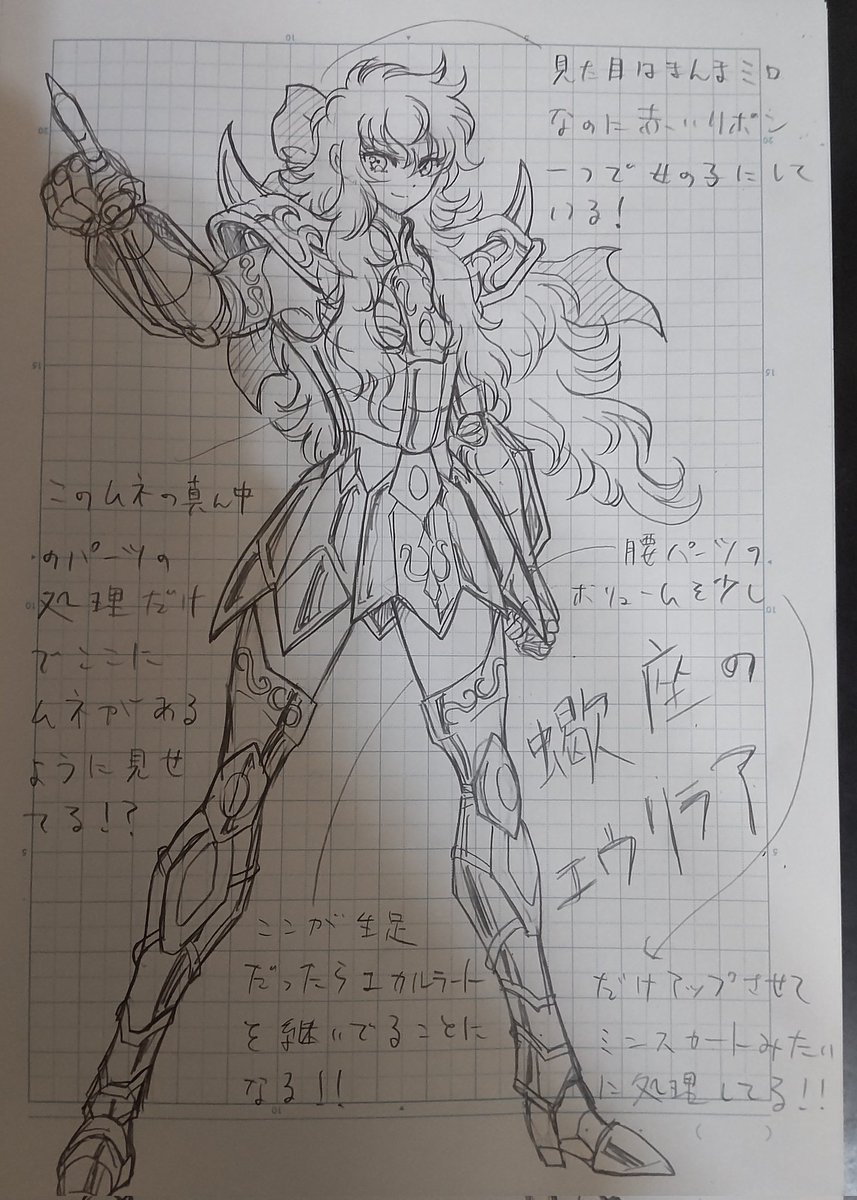 見た目はまんまミロ
なのに赤いリボン
一つで女の子にして
いる!
このムネの真ん中
のパーツの
処理だけ
でここに
ムネがある
ように見せ
てる!?
腰パーツの
ボリュームを少し
だけアップさせて
ミニスカートみたい
に処理してる!!
蠍座の
エウリラア
ここが生足
だったらエカルラート
を継いでることに
なる!!
20
10
5
20
15
15
10
10
5
5
10
( )